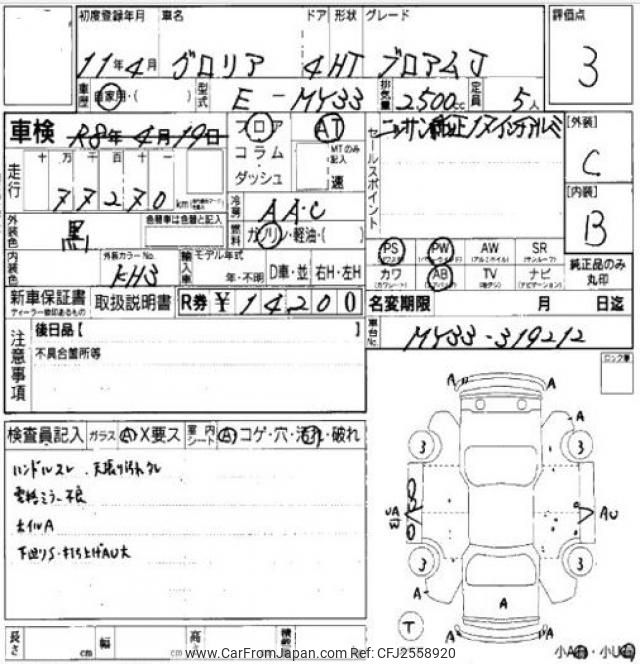 初度登録年月 車名 ドア 形状 グレード 評価点
11年4月 グロリア 4HT ブロアムJ 3
車歴 自家用・( ) 型式 E-MY33 排気量 2500cc 定員 5人
車検 R8年4月19日 フロア AT セールスポイント [外装] C
走行 十万千百十一 77270km コラム・ダッシュ MTのみ記入 速
冷房 AA・C [内装] B
外装色 黒 色替車は色替と記入 燃料 ガソリン・軽油・( )
PS PW AW SR
(パワステ) (パワーウィンド) (アルミホイル) (サンルーフ)
内装色 外装カラーNo. KH3 輸入車 モデル年式 年・不明 D車・並 右H・左H
カワ AB TV ナビ 純正品のみ丸印
(カワシート) (エアバック) (地デジ) (ナビゲーション)
新車保証書 取扱説明書 R券 ¥14200 名変期限 月 日迄
ディーラー捺印あるもの
車台No. MY33-319212
注意事項 後日品【 】
不具合箇所等
ロック車
検査員記入 ガラス A・X要ス 室内シート A・コゲ・穴・汚れ・破れ
ハンドルスレ
下回りS
A A
A
3 3
AU
3 3
A A
A
T
A
長さ cm 幅 cm 高さ
小A 小U
www.CarFromJapan.com Ref: CFJ2558920